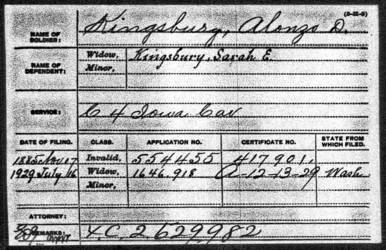 (3-22-8)
NAME OF SOLDIER: Kingsbury, Alonzo D.
NAME OF DEPENDENT: Widow, Kingsbury, Sarah E.
Minor,
SERVICE: C 4 Iowa Cav
DATE OF FILING. CLASS. APPLICATION NO. CERTIFICATE NO. STATE FROM WHICH FILED.
1885, Nov 17 Invalid, 554455 417901.
1929 July 16 Widow, 1646.918 A-12-13-29 Wash
Minor,
ATTORNEY:
REMARKS: X.C. 2629982